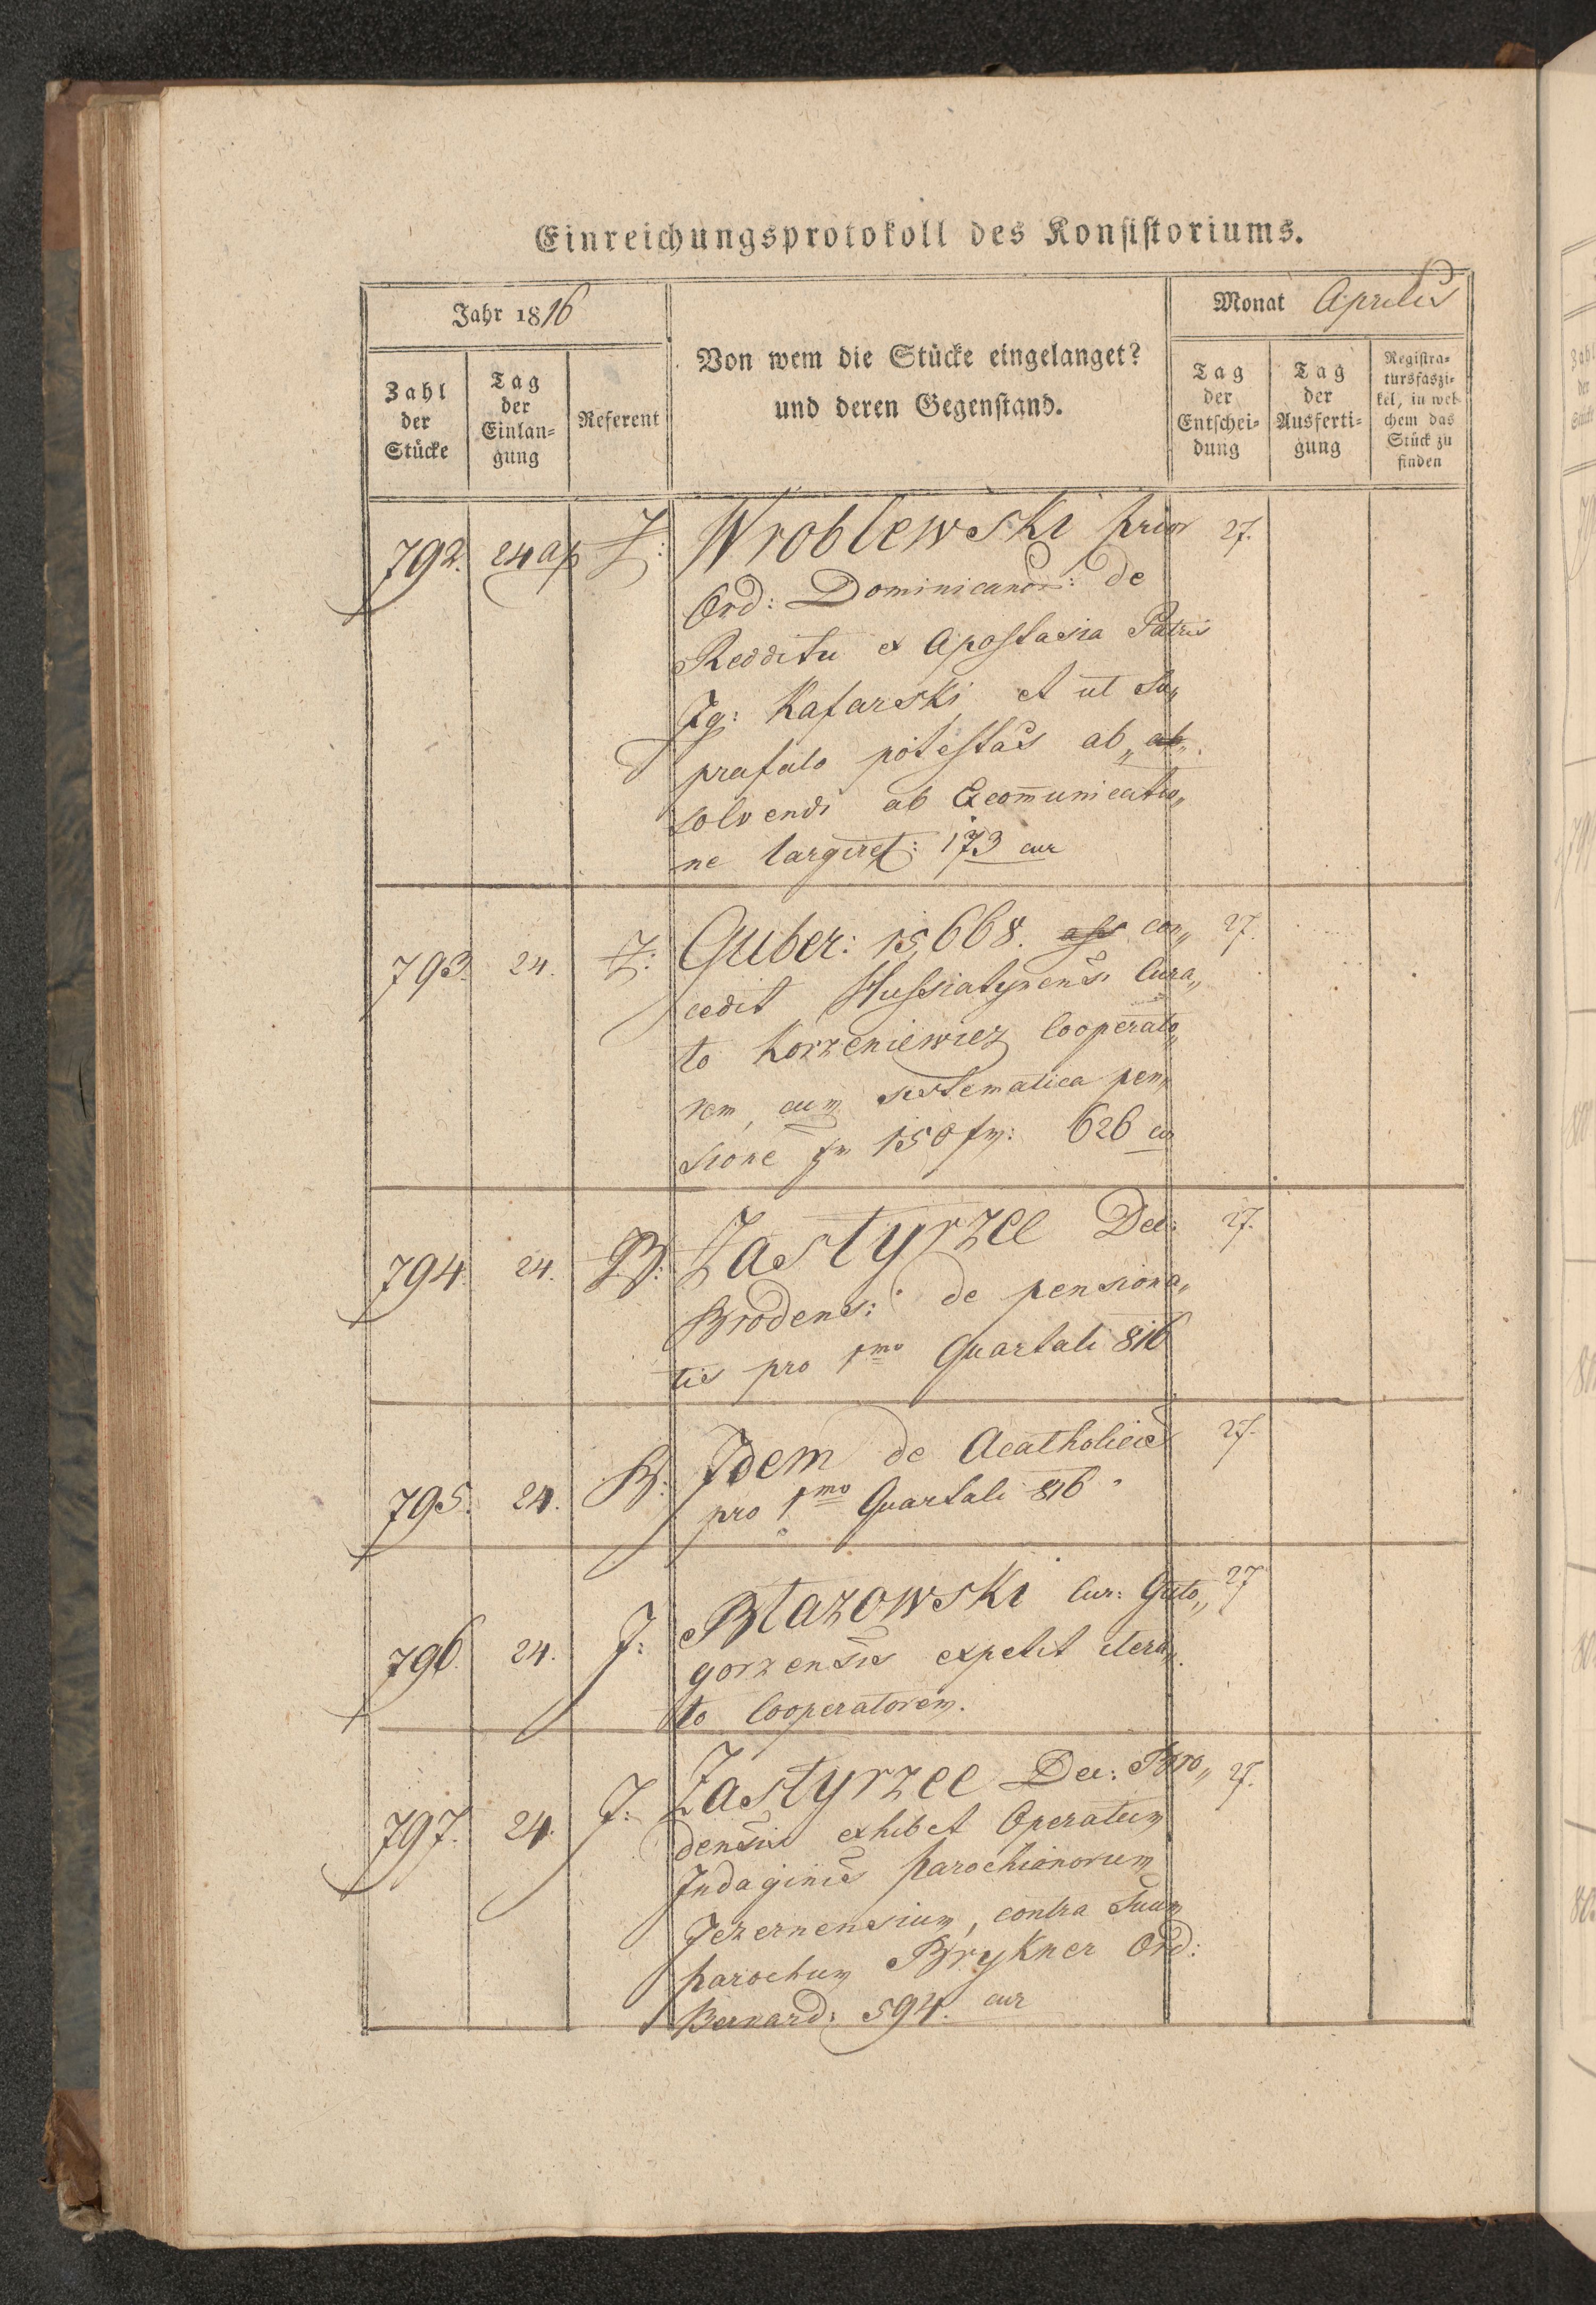 Einreichungsprotokoll des Konsistoriums.
Jahr 1816
Monat Aprilis
Von wem die Stücke eingelanget?
und deren Gegenstand.
Zahl
der
Stücke
Tag
der
Einlan=
gung
Referent
Tag
der
Entschei=
dung
Tag
der
Ausferti=
gung
Registra=
tursfaszi=
kel, in wel=
chem das
Stück zu
finden
792. 24 ap Z: Wroblewski prior 27.
Ord: Dominicanor: de
Redditu ex Apostasia Patris
Ig: Kafarski et ut Su„
prafato potestas ab„ ab„
solvendi ab Excom̄unicatio„
ne largiret: 173 cur
793. 24. Z: Guber: 15,668. con„ 27.
cedit Hussiatynensi Cura„
to Korzeniewicz Cooperato„
rem, cum sistematica pen„
sione 150 fr: 626 cu
794. 24. B: Zastyrzec Dec: 27.
Brodens: de pensiona„
tis pro 1mo Quartali 816
795. 24. B: Idem de Acatholicis 27.
pro 1mo Quartali 816
796. 24. J: Blazowski Cur: Guto„ 27
gorzensis expetit itera„
to Cooperatorem.
797. 24. J: Zastyrzec Dec: Bro„ 27.
densis exhibet Operatum
Indaginis Parochianorum
Jezernensium, contra Suum
parochum Brykner Ord:
Bernard: 594. cur